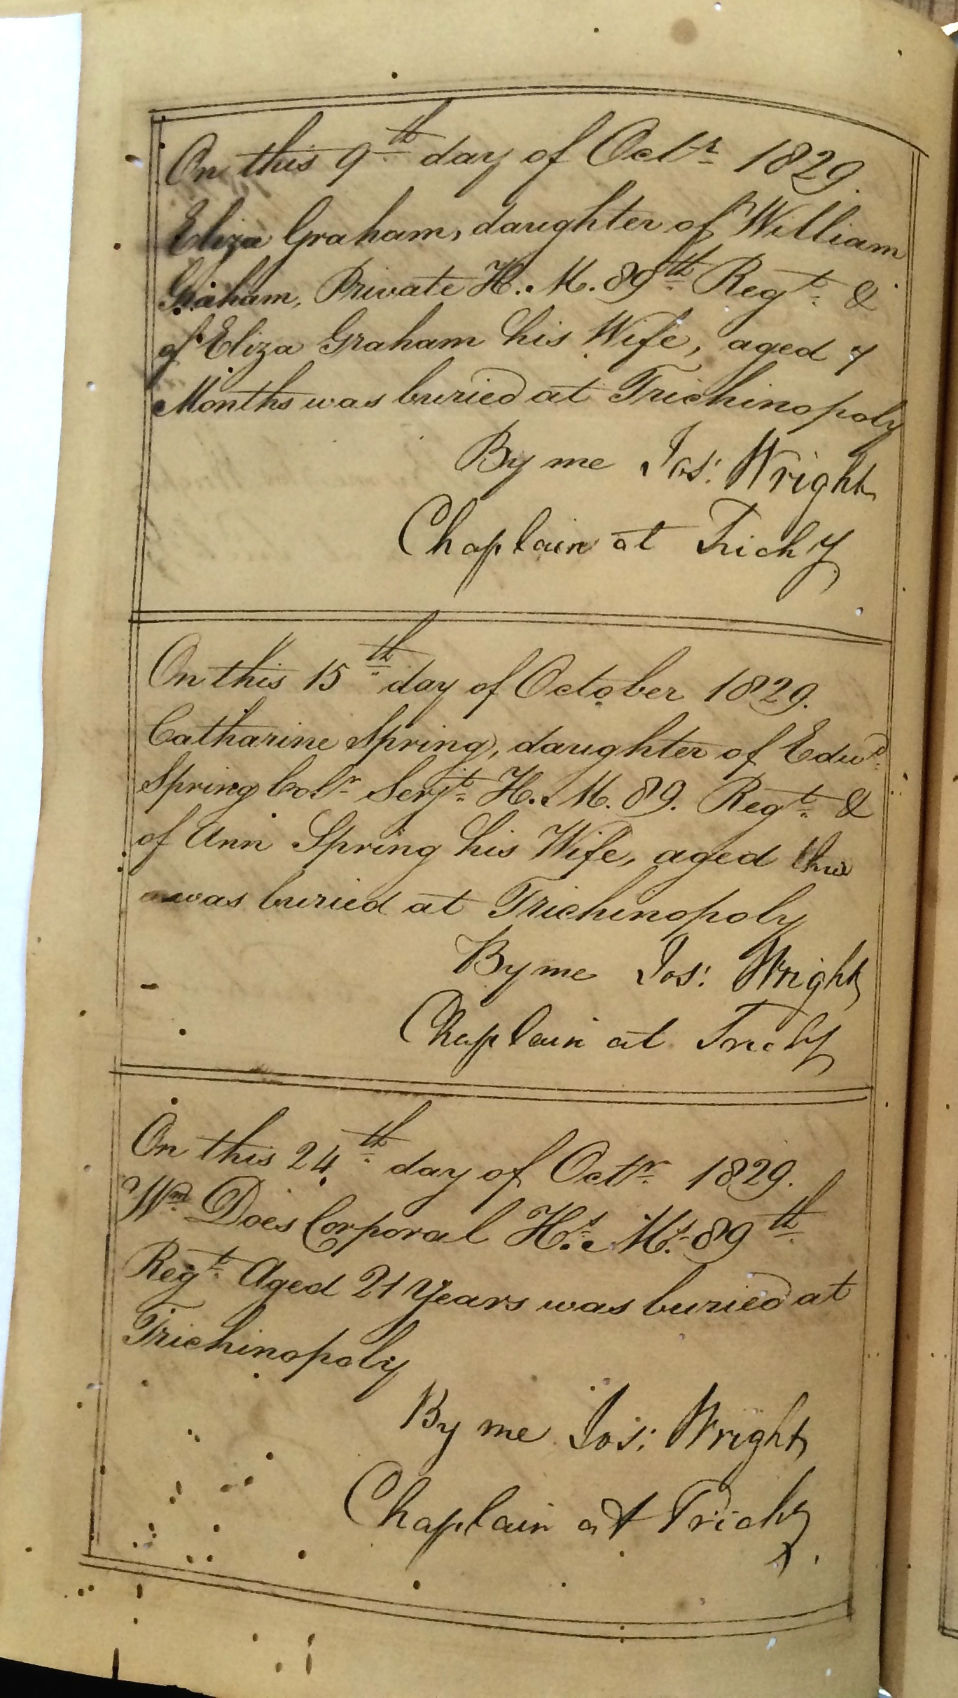 On this 9th day of Octr 1829.
Eliza Graham, daughter of William
Graham, Private H. M. 89th Regt &
of Eliza Graham his Wife, aged 7
Months was buried at Trichinopoly
By me Jos: Wright
Chaplain at Trichy
On this 15th day of October 1829.
Catharine Spring, daughter of Edwd
Spring Colr Serjt H. M. 89. Regt &
of Ann Spring his Wife, aged
was buried at Trichinopoly
By me Jos: Wright
Chaplain at Trichy
On this 24th day of Octr 1829.
Wm Does Corporal Hs. Ms. 89th
Regt Aged 21 Years was buried at
Trichinopoly
By me Jos: Wright
Chaplain at Trichy